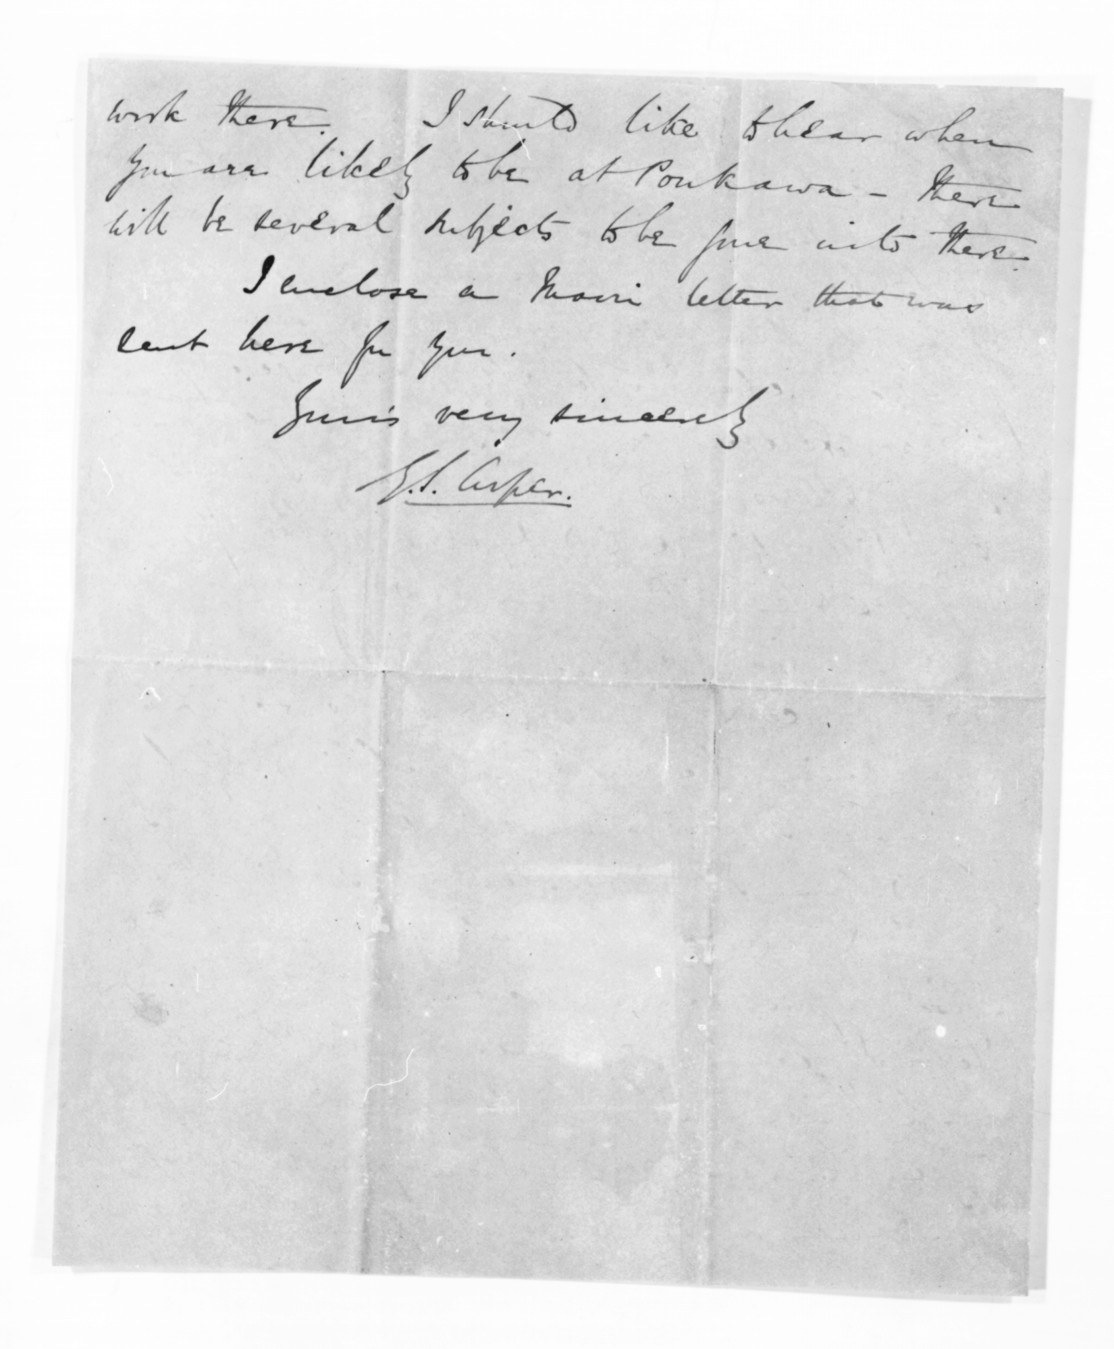 work there. I should like to hear when
you are likely to be at Poukawa - there
will be several subjects to be gone into there.
I enclose a Maori letter that was
sent here for you.
Yours very sincerely
G.S. Cooper.